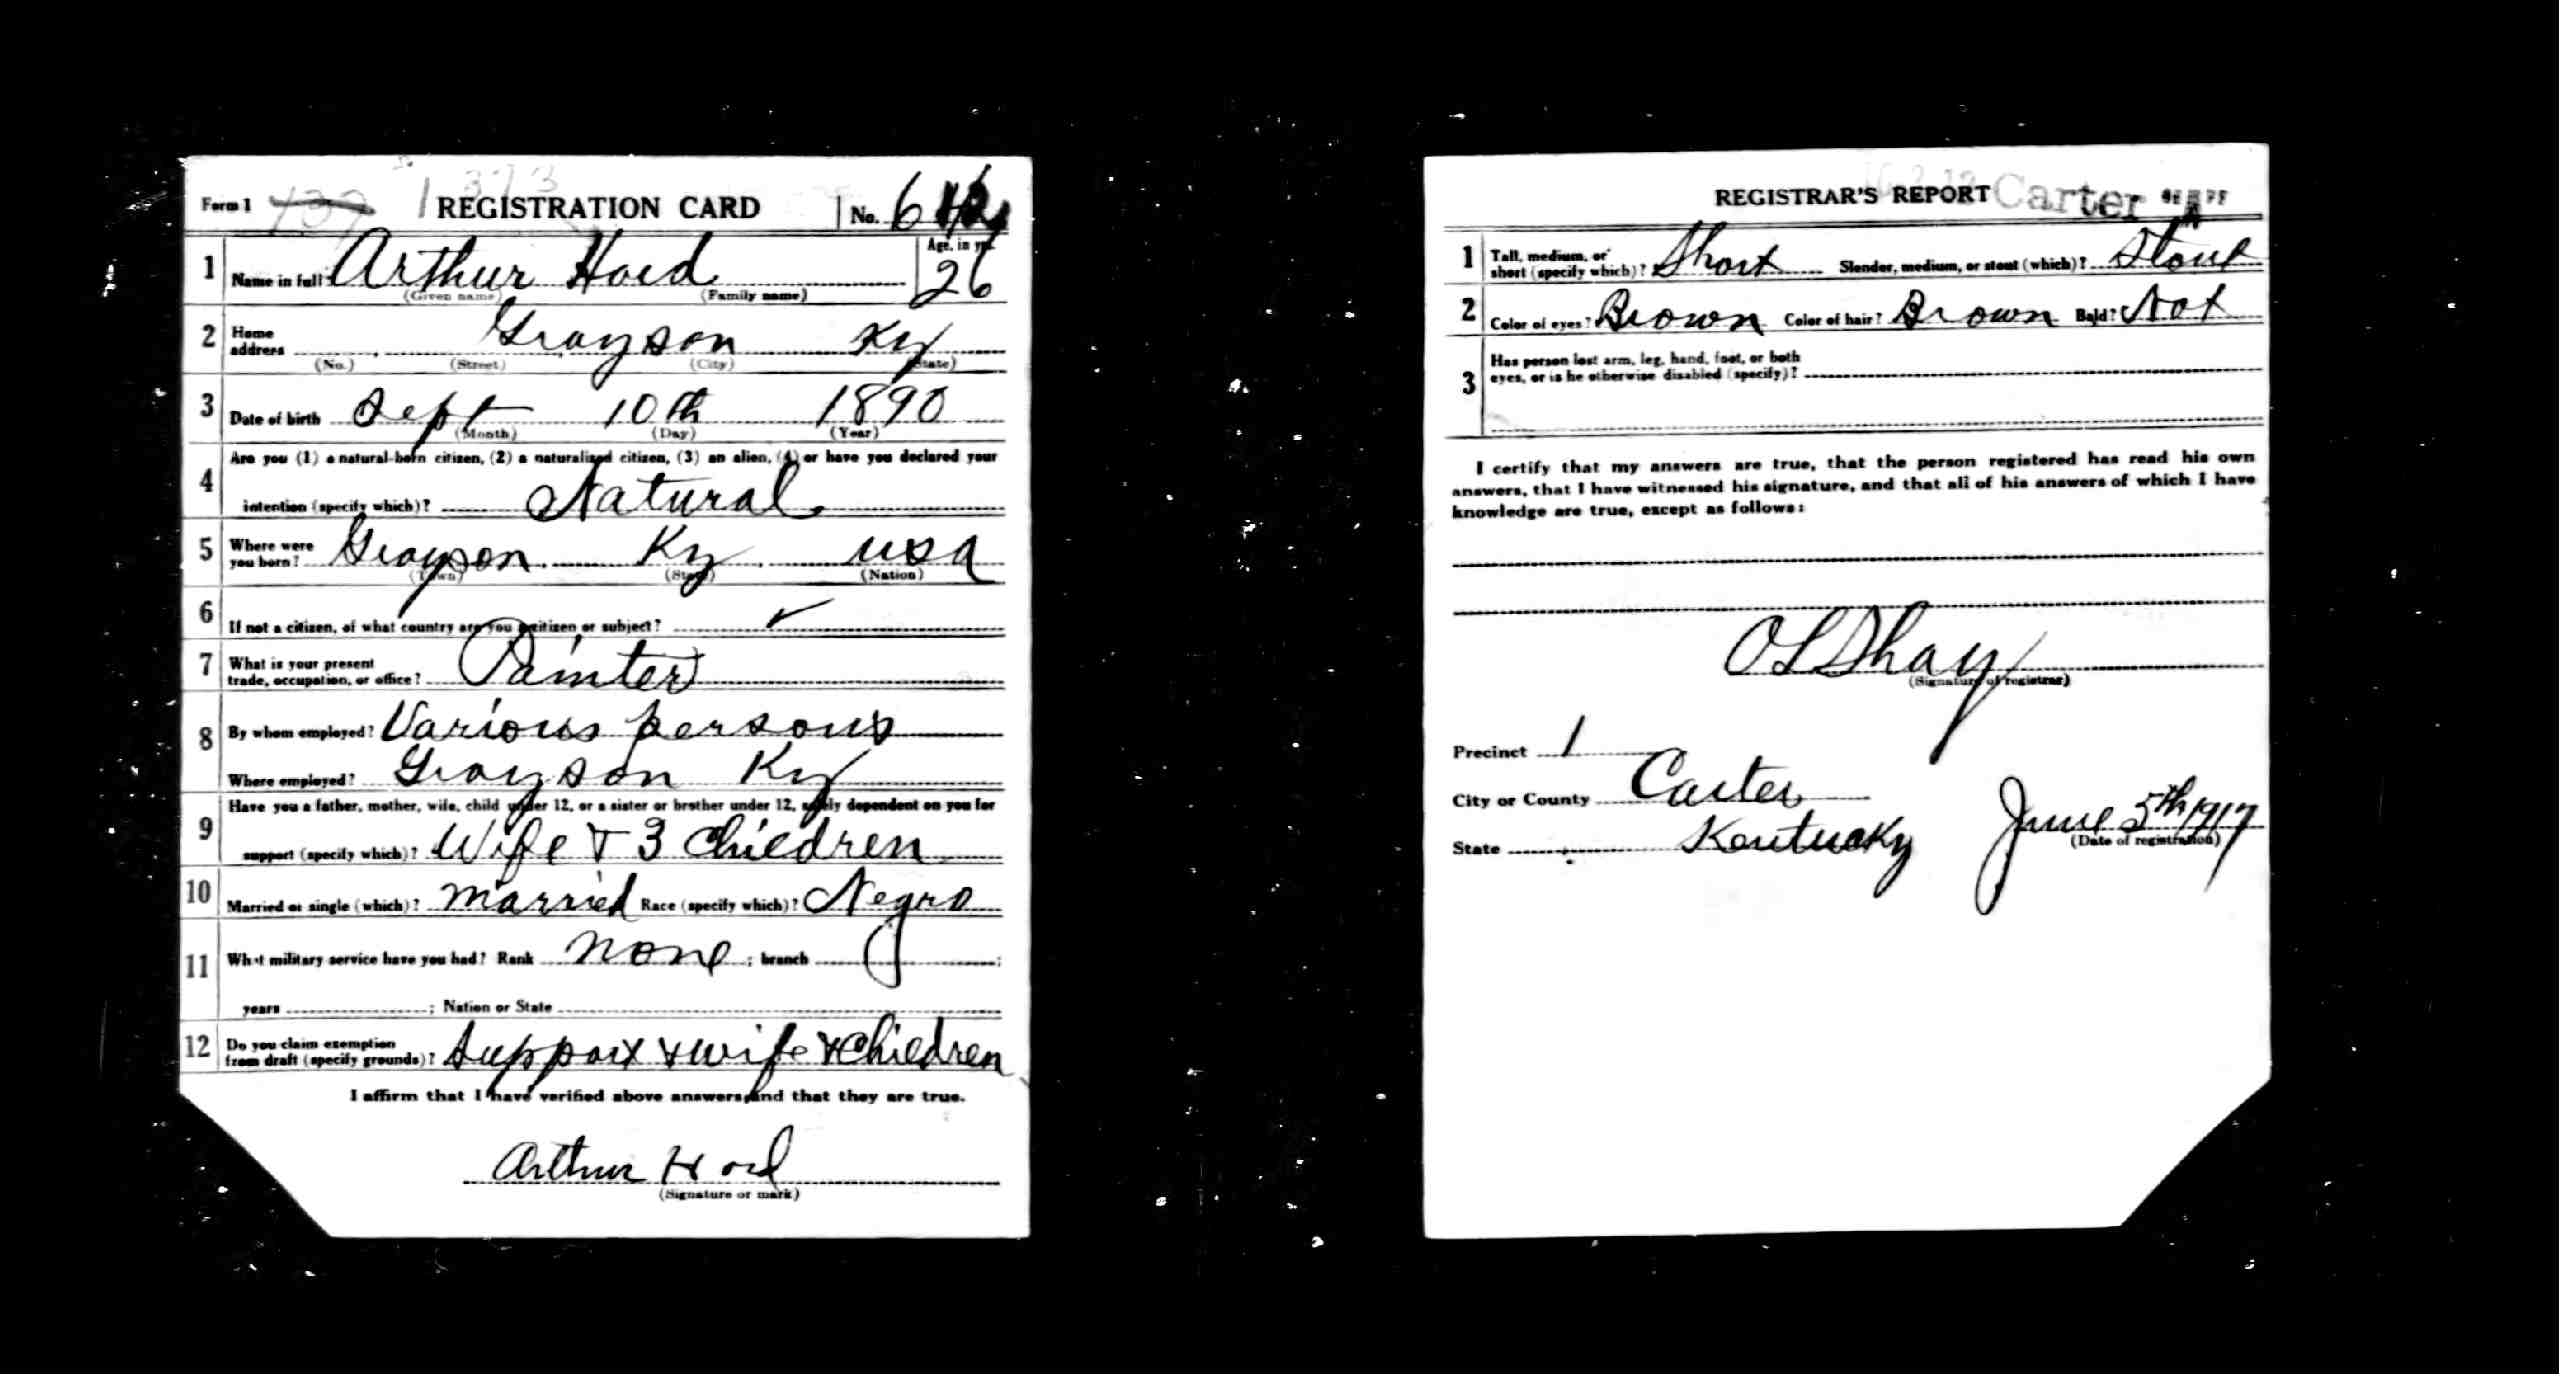 Form 1 REGISTRATION CARD No. 6
1 Name in full Arthur Hord Age, in yrs. 26
(Given name) (Family name)
2 Home address Grayson Ky
(No.) (Street) (City) (State)
3 Date of birth Sept 10th 1890
(Month) (Day) (Year)
4 Are you (1) a natural-born citizen, (2) a naturalized citizen, (3) an alien, (4) or have you declared your
intention (specify which)? Natural
5 Where were you born? Grayson Ky USA
(Town) (State) (Nation)
6 If not a citizen, of what country are you a citizen or subject?
7 What is your present trade, occupation, or office? Painter
8 By whom employed? Various persons
Where employed? Grayson Ky
9 Have you a father, mother, wife, child under 12, or a sister or brother under 12, solely dependent on you for
support (specify which)? Wife + 3 Children
10 Married or single (which)? Married Race (specify which)? Negro
11 What military service have you had? Rank None ; branch ;
years ; Nation or State
12 Do you claim exemption from draft (specify grounds)? Support + wife + Children
I affirm that I have verified above answers and that they are true.
Arthur Hord
(Signature or mark)
REGISTRAR'S REPORT Carter
1 Tall, medium, or short (specify which)? Short Slender, medium, or stout (which)? Stout
2 Color of eyes? Brown Color of hair? Brown Bald? Not
3 Has person lost arm, leg, hand, foot, or both
eyes, or is he otherwise disabled (specify)?
I certify that my answers are true, that the person registered has read his own
answers, that I have witnessed his signature, and that all of his answers of which I have
knowledge are true, except as follows:
O L Shay
(Signature of registrar)
Precinct 1
City or County Carter
State Kentucky June 5th 1917
(Date of registration)